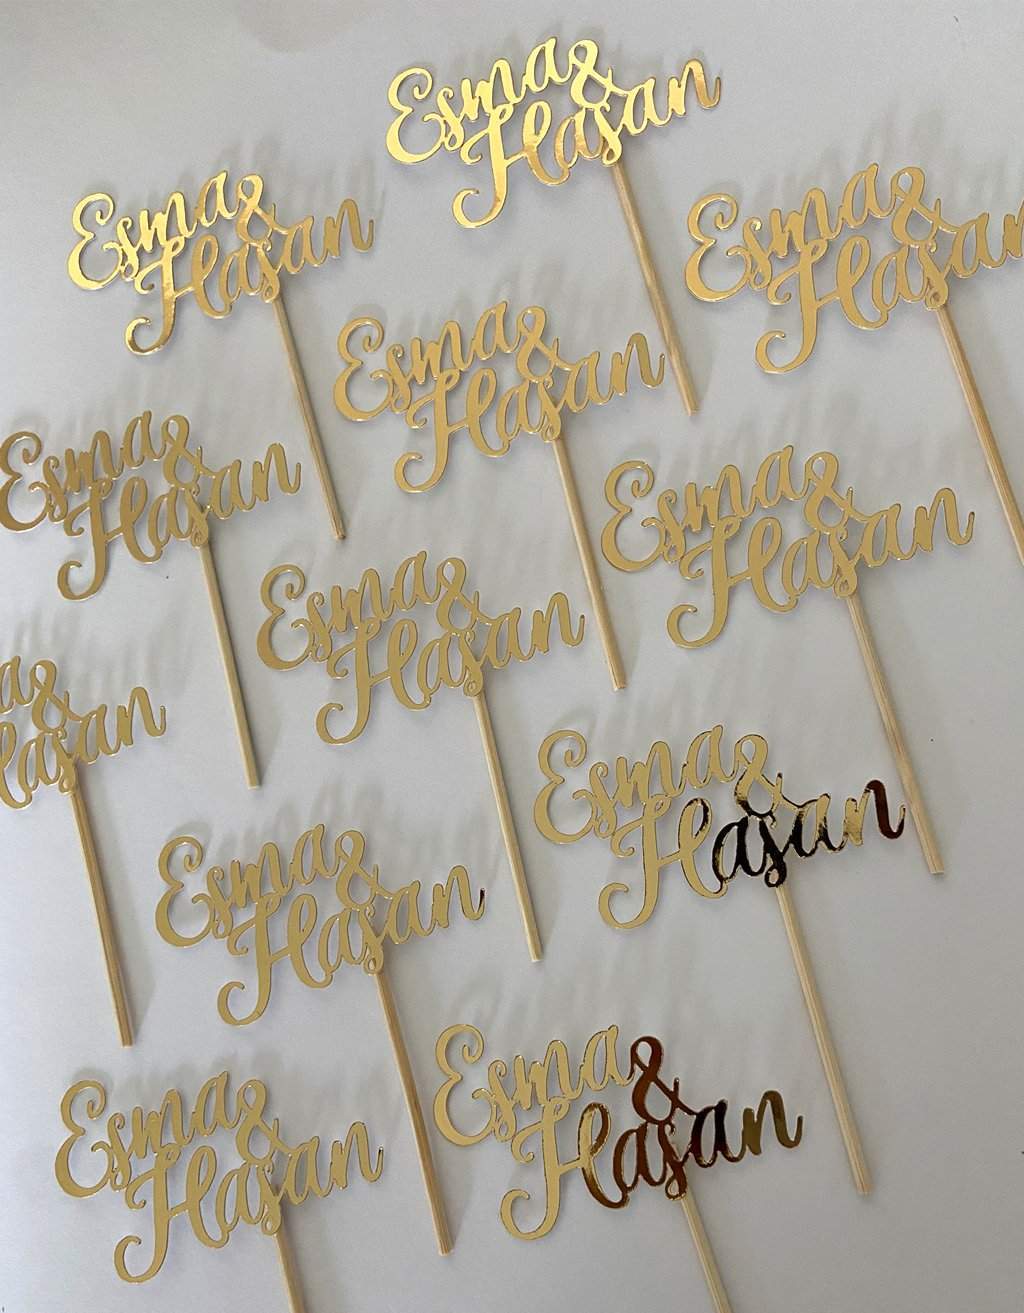 Esma &
Hasan
Esma &
Hasan
Esma &
Hasan
Esma &
Hasan
Esma &
Hasan
Esma &
Hasan
Esma &
Hasan
a &
Hasan
Esma &
Hasan
Esma &
Hasan
Esma &
Hasan
Esma &
Hasan